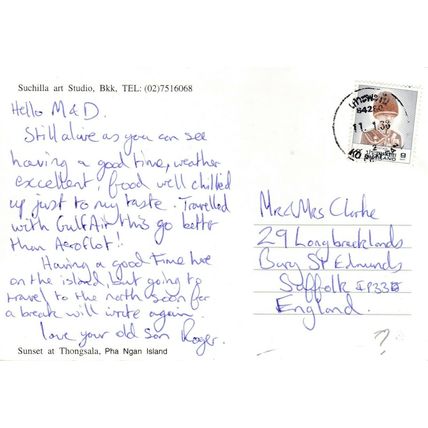 Suchilla art Studio, Bkk, TEL: (02)7516068
Hello M & D.
Still alive as you can see
having a good time, weather
excellent, food well chillied
up just to my taste. Travelled
with Gulf Air this go better
than Aeroflot!!
Having a good time here
on the island, but going to
travel to the north soon for
a break will write again
love your old son Roger.
Sunset at Thongsala, Pha Ngan Island
84280
11.1.
THAILAND
Mr & Mrs Clarke
29 Longbracklands
Bury St Edmunds
Suffolk IP33
England.